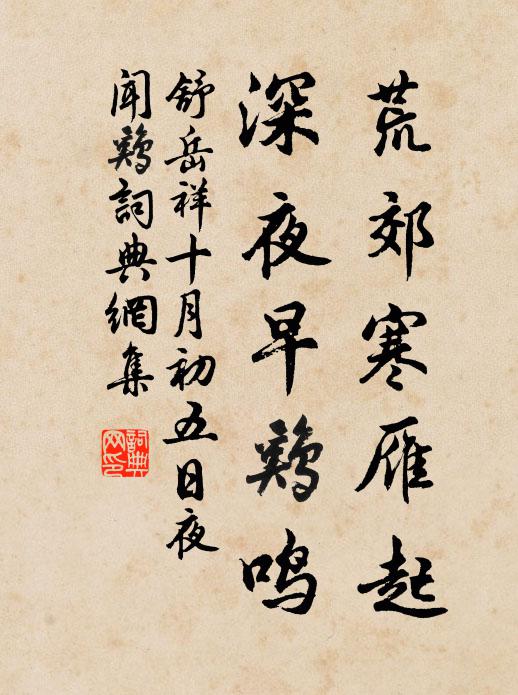 荒郊寒雁起
深夜早鷄鸣
舒岳祥十月初五日夜
闻鷄詞典網集
詞典网印